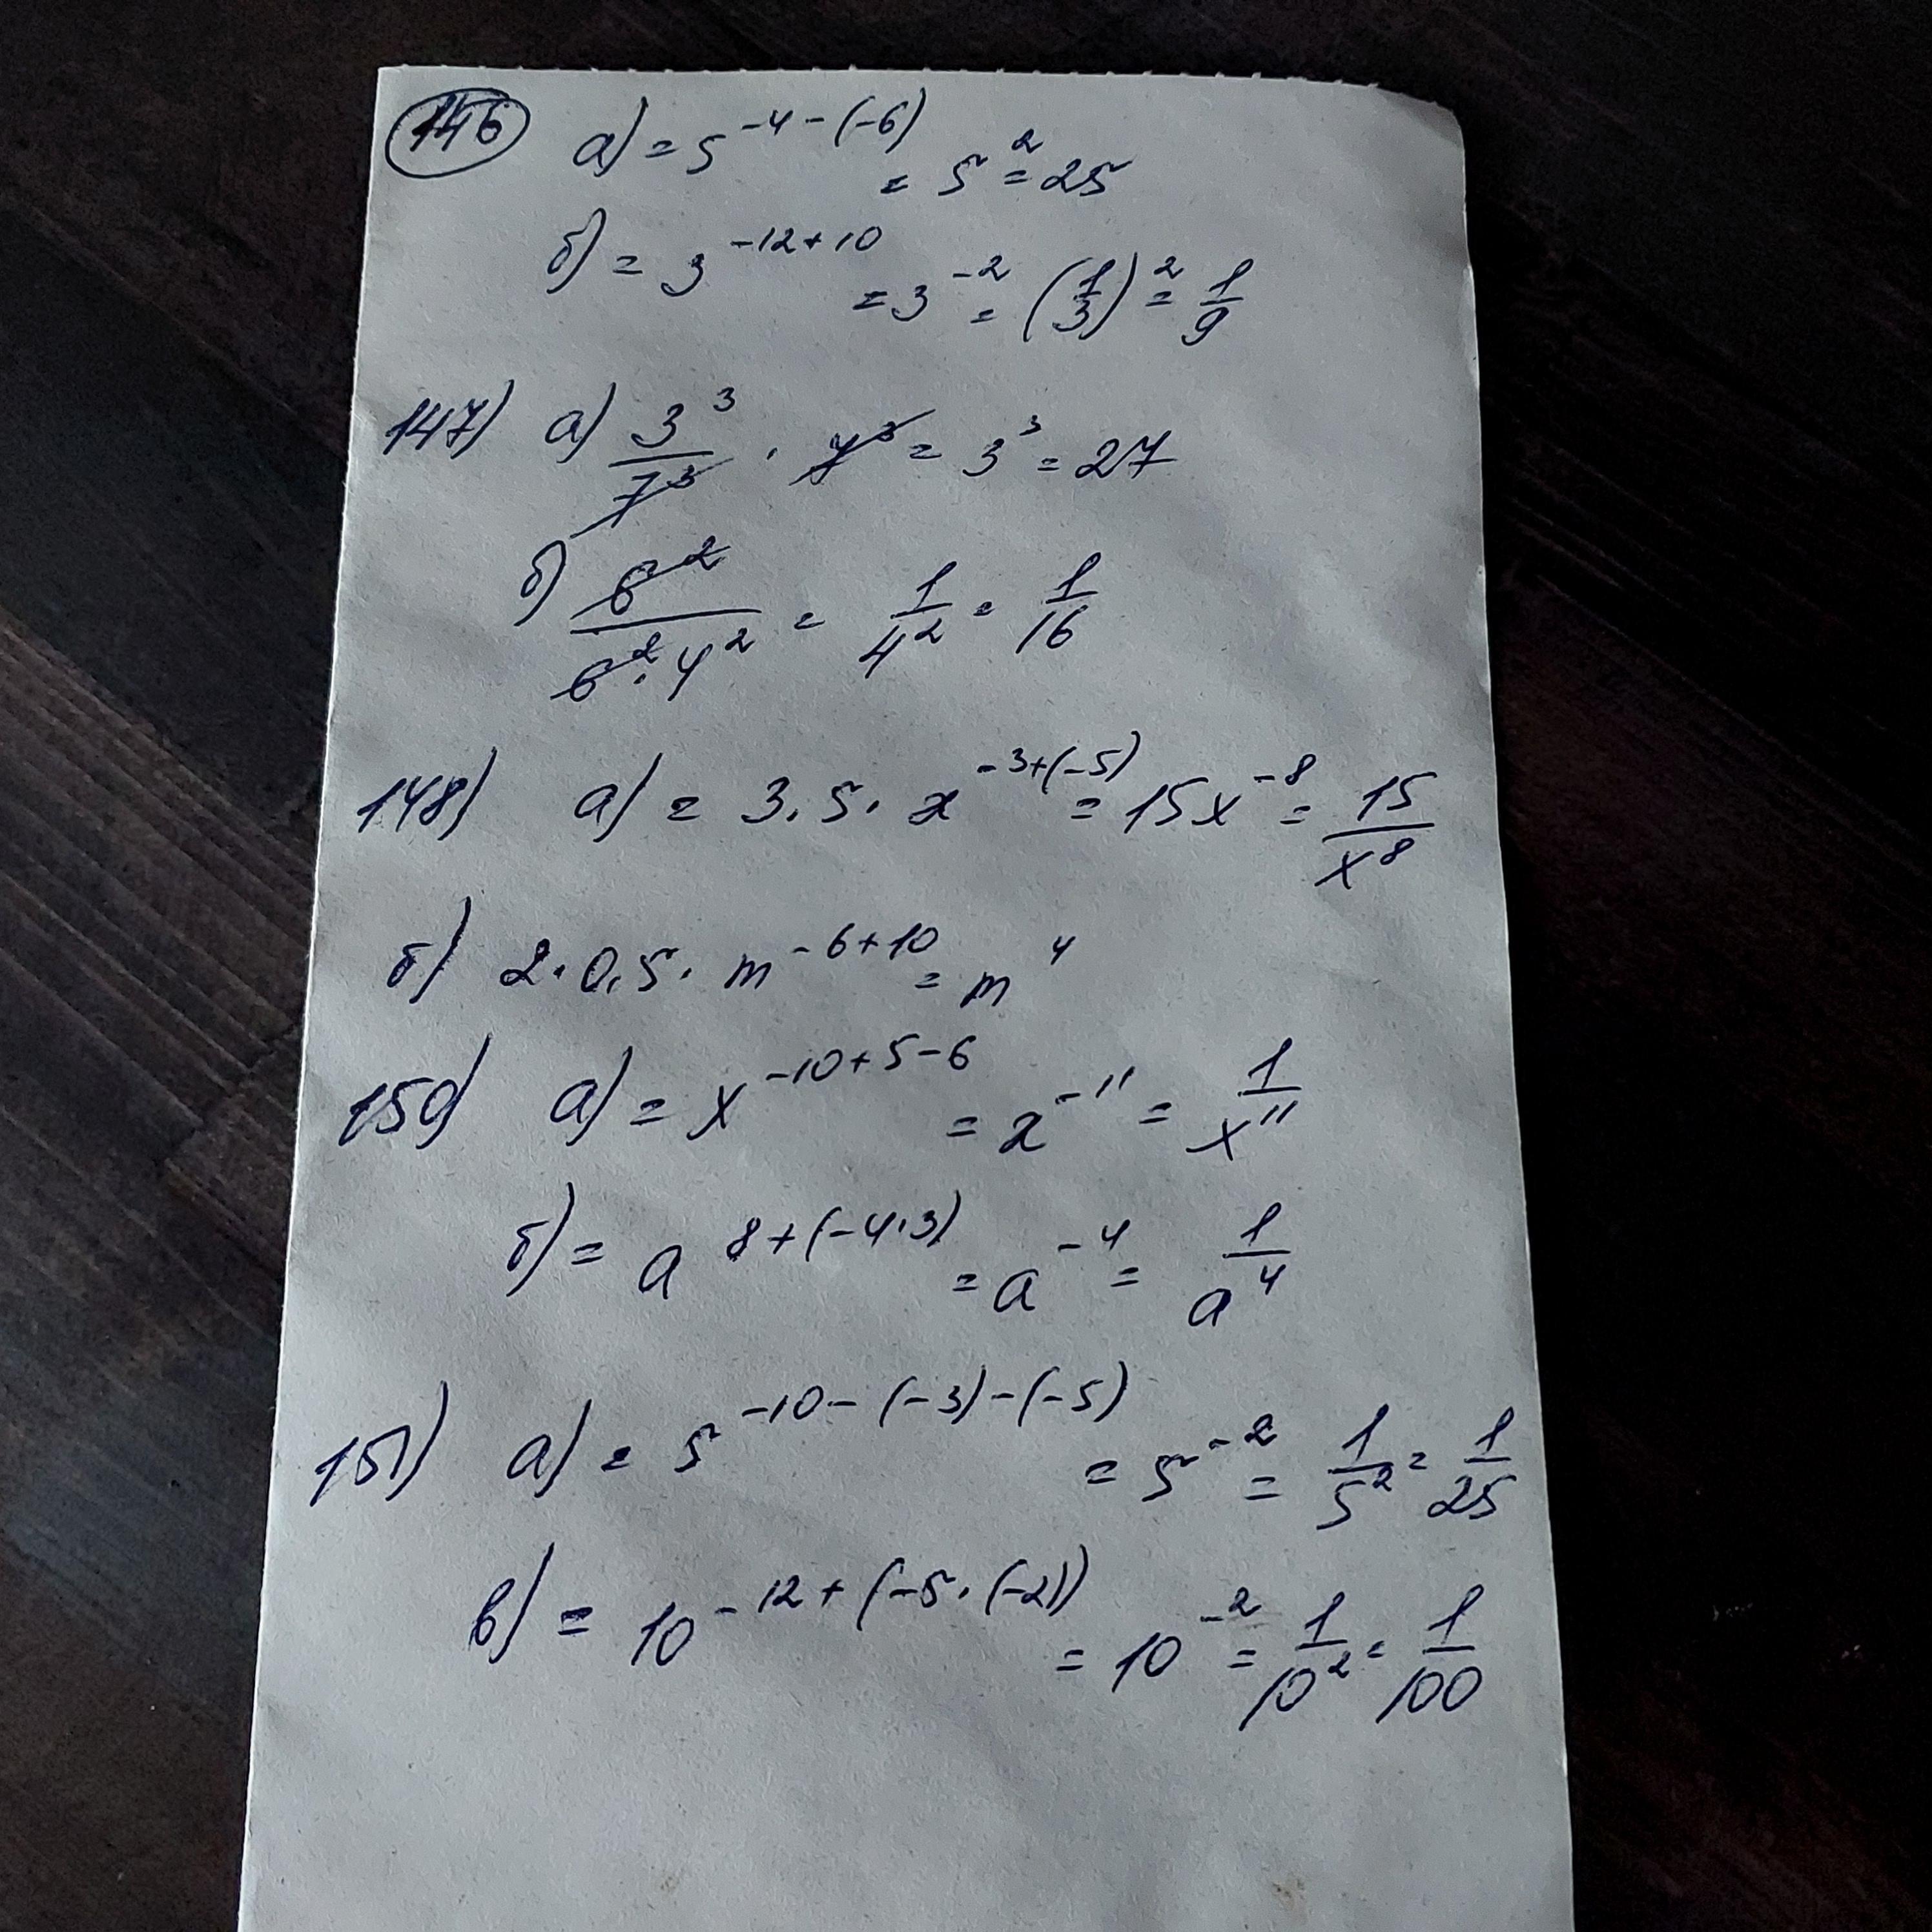 146 а) = 5^{-4-(-6)} = 5^2 = 25
б) = 3^{-12+10} = 3^{-2} = (1/3)^2 = 1/9
147) а) 3^3/7^3 · 7^3 = 3^3 = 27
б) 6^2/(6^2 · 4^2) = 1/4^2 = 1/16
148) а) = 3 · 5 · x^{-3+(-5)} = 15x^{-8} = 15/x^8
б) 2 · 0,5 · m^{-6+10} = m^4
150) а) = x^{-10+5-6} = x^{-11} = 1/x^{11}
б) = a^{8+(-4·3)} = a^{-4} = 1/a^4
151) а) = 5^{-10-(-3)-(-5)} = 5^{-2} = 1/5^2 = 1/25
в) = 10^{-12+(-5·(-2))} = 10^{-2} = 1/10^2 = 1/100